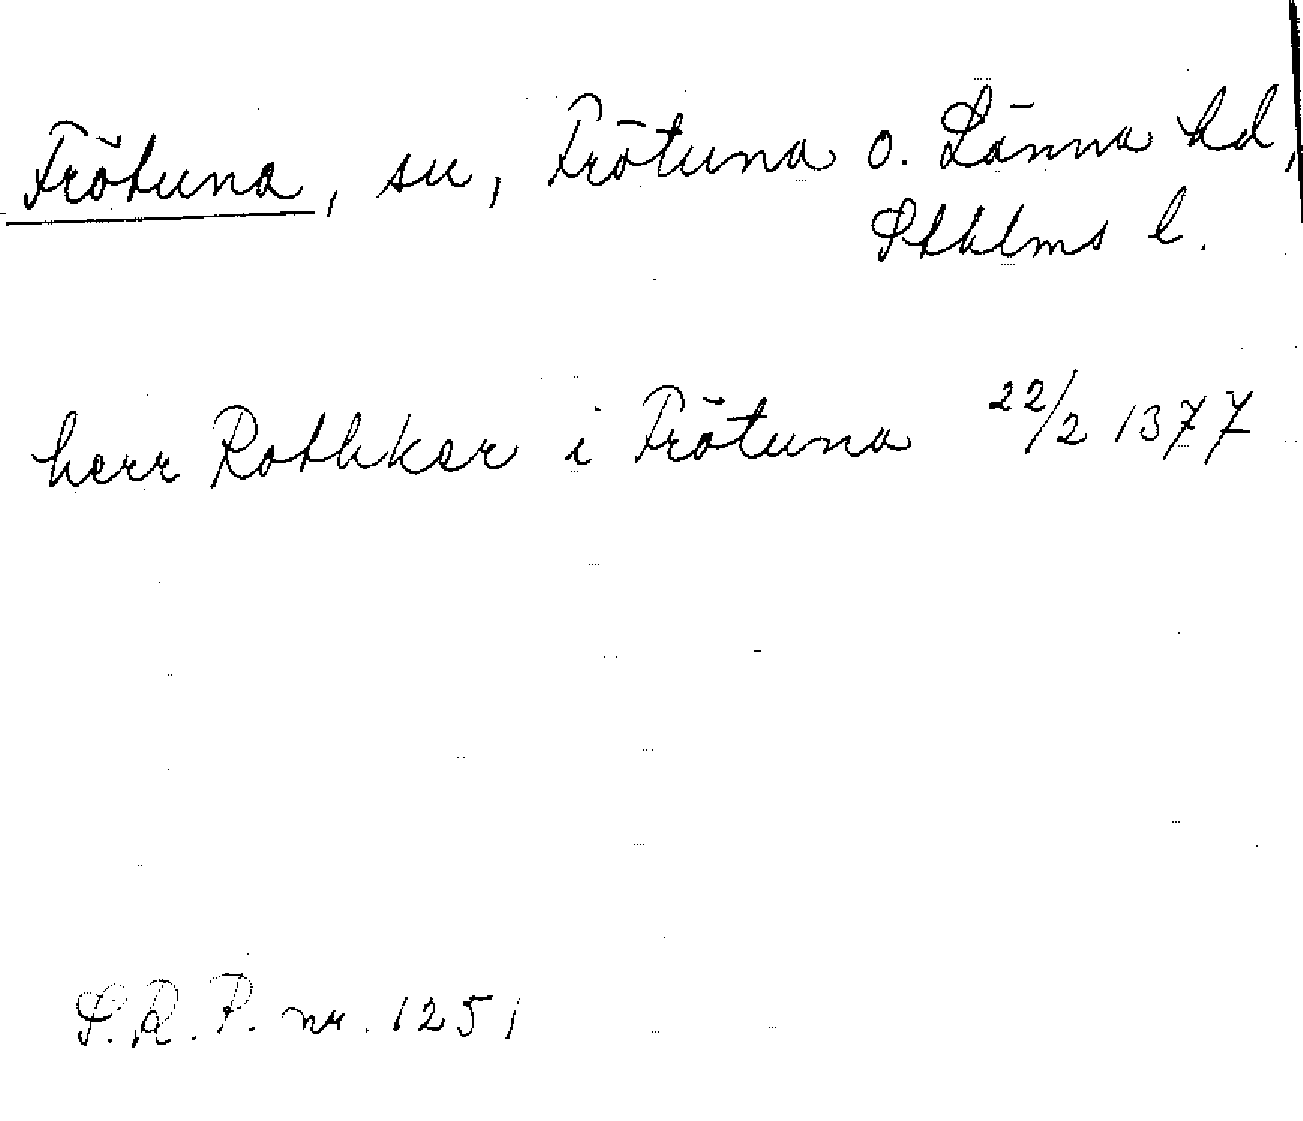 Frötuna, su, Frötuna o. Länna hd,
Sthlms l.
herr Rothker i Frötuna 22/2 1377
S.R.P. nr. 1251